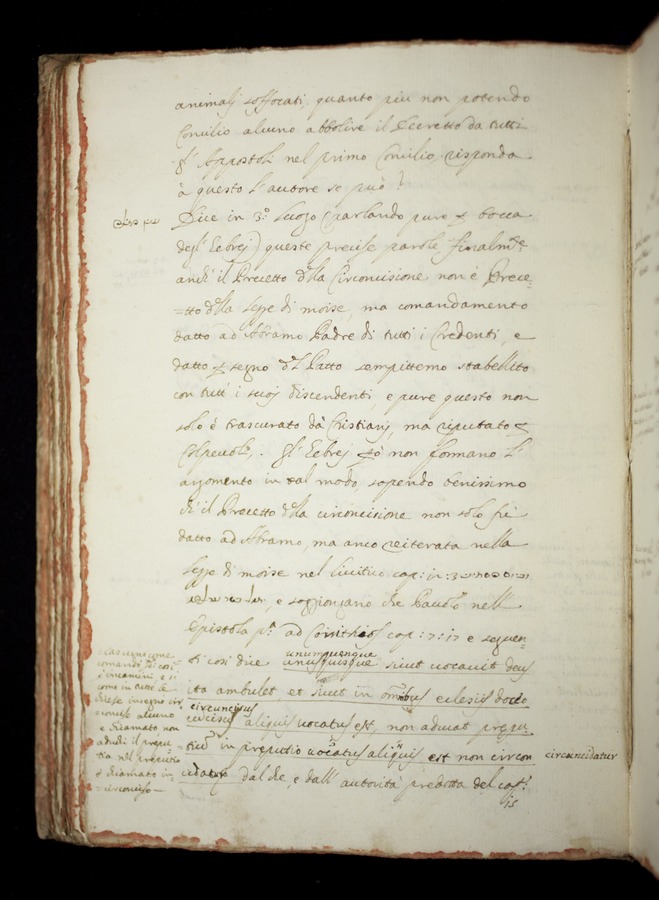 animalj soffocati, quanto piu non potendo
Concilio alcuno abbolire il Decretto da tutti
gl' Appostoli nel primo Concilio, risponda
à questo l'autore se può?
Dice in 3.º luogo (parlando pure
degl' Eebrej) queste precise parole finalm.te
il Precetto della Circoncisione non è Prece-
=tto della legge di moise, ma comandamento
datto ad Abramo Padre di tutti i Credenti, e
datto segno del Patto sempitterno stabellito
con tutt' i suoj discendenti, e pure questo non
solo é trascurato dà Cristianj, ma riputato
Colpevole,. gl' Eebrej però non formano l'
argomento in tal modo, sapendo benissimo
il Precetto della circoncisione non solo fù
datto ad Abramo, ma anco reiterata nella
legge di moise nel livitico cap: 12:3
e soggiongano che Paudo nell
Epistola p.ª ad Corinthios cap: 7: 17 e seguen-
ti cosi dice unumquenque unusquisque sicut vocavit deus
ita ambulet et sicut in omnibus eclesiis doceo
circuncisus aliquis vocatus est, non aducat prepu-
tiu in preputio vocatus aliquis est non circon circuncidatur
cidatur dal che, e dall' autorità predetta del cap:
is
e ciascuno come
comandò Di cosi
s' incamini, e si
come in tutte le
chiese insegno cir
conciso alcuno
è chiamato non
adudi il prepu-
tio nel preputio
è chiamato in-
circonciso